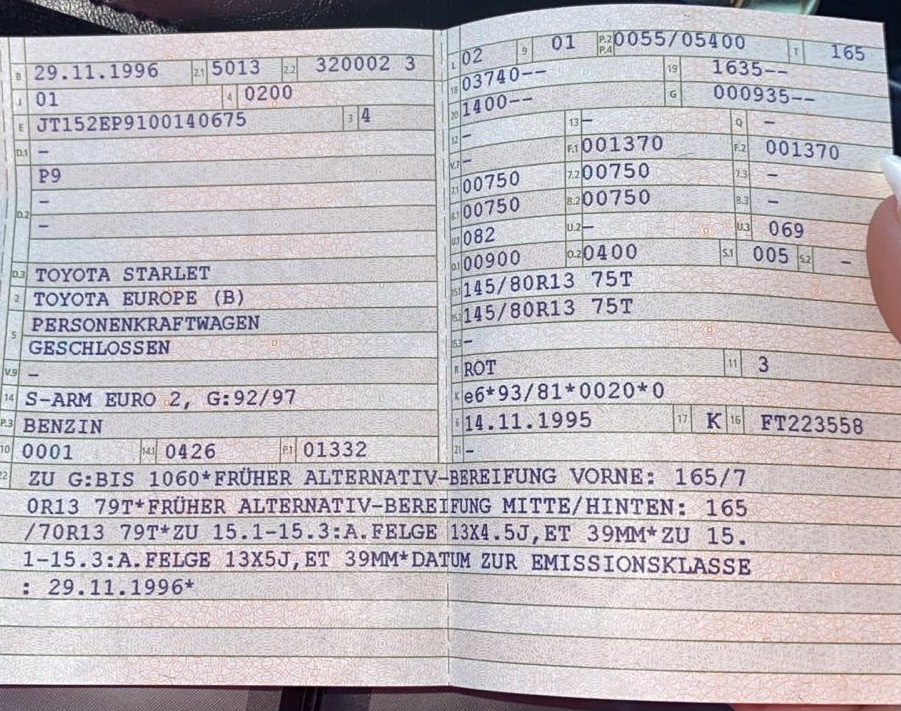 B 29.11.1996 2.1 5013 2.2 320002 3
J 01 4 0200
E JT152EP9100140675 3 4
D.1 –
P9
D.2 –
–
D.3 TOYOTA STARLET
2 TOYOTA EUROPE (B)
5 PERSONENKRAFTWAGEN
GESCHLOSSEN
V.9 –
14 S-ARM EURO 2, G:92/97
P.3 BENZIN
10 0001 14.1 0426 P.1 01332
L 02 9 01 P.2 P.4 0055/05400 T 165
18 03740-- 19 1635--
20 1400-- G 000935--
12 – 13 – Q –
V.7 – F.1 001370 F.2 001370
7.1 00750 7.2 00750 7.3 –
8.1 00750 8.2 00750 8.3 –
U.1 082 U.2 – U.3 069
O.1 00900 O.2 0400 S.1 005 S.2 –
15.1 145/80R13 75T
15.2 145/80R13 75T
15.3 –
R ROT 11 3
K e6*93/81*0020*0
6 14.11.1995 17 K 16 FT223558
21 –
22 ZU G:BIS 1060*FRÜHER ALTERNATIV-BEREIFUNG VORNE: 165/7
0R13 79T*FRÜHER ALTERNATIV-BEREIFUNG MITTE/HINTEN: 165
/70R13 79T*ZU 15.1-15.3:A.FELGE 13X4.5J,ET 39MM*ZU 15.
1-15.3:A.FELGE 13X5J,ET 39MM*DATUM ZUR EMISSIONSKLASSE
: 29.11.1996*